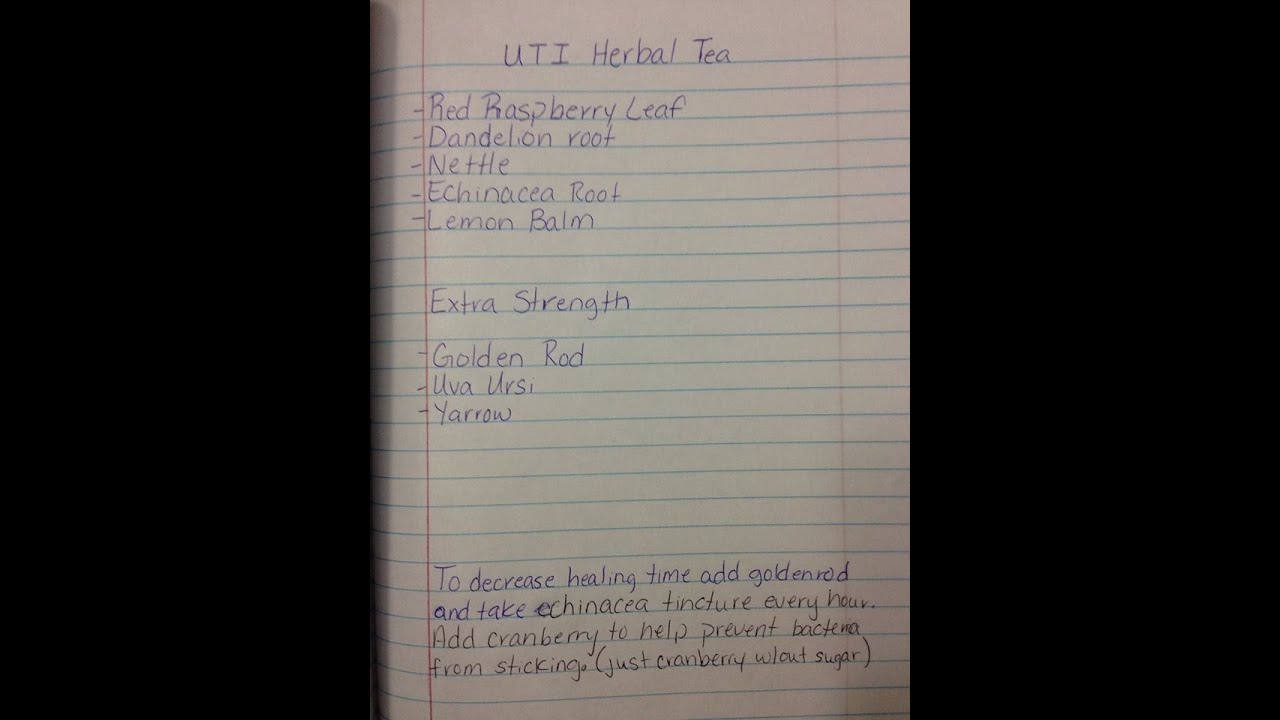 UTI Herbal Tea
-Red Raspberry Leaf
-Dandelion root
-Nettle
-Echinacea Root
-Lemon Balm
Extra Strength
-Golden Rod
-Uva Ursi
-Yarrow
To decrease healing time add goldenrod
and take echinacea tincture every hour.
Add cranberry to help prevent bacteria
from sticking. (just cranberry w/out sugar)